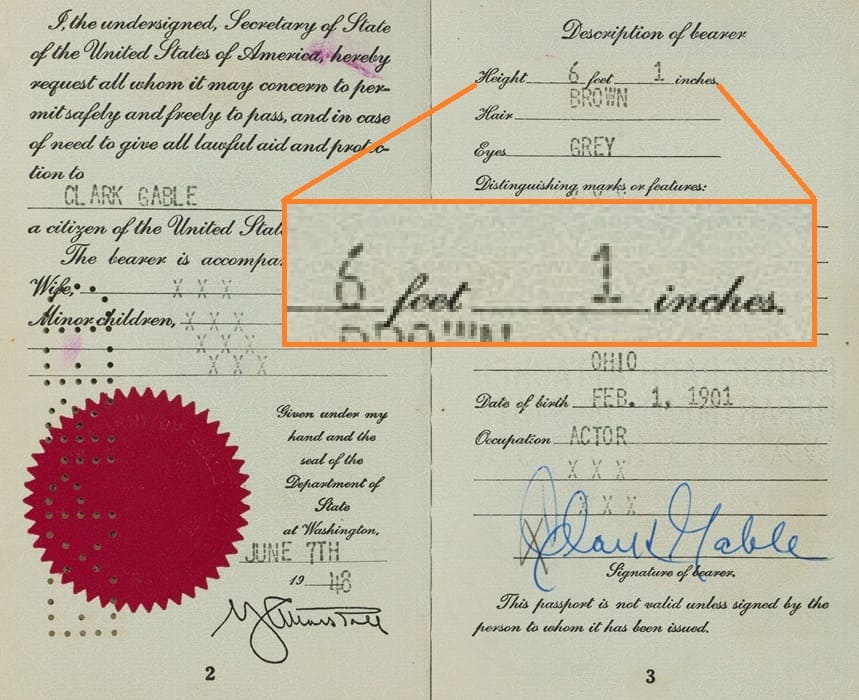 I, the undersigned, Secretary of State
of the United States of America, hereby
request all whom it may concern to per-
mit safely and freely to pass, and in case
of need to give all lawful aid and protec-
tion to
CLARK GABLE
a citizen of the United Stat
The bearer is accompa
Wife, X X X
Minor children, X X X
X X X
X X X
Given under my
hand and the
seal of the
Department of
State
at Washington,
JUNE 7TH
19 48
2
Description of bearer
Height 6 feet 1 inches.
BROWN
Hair
Eyes GREY
Distinguishing marks or features:
6 feet 1 inches.
BROWN
OHIO
Date of birth FEB. 1, 1901
Occupation ACTOR
X X X
X X X
X Clark Gable
Signature of bearer.
This passport is not valid unless signed by the
person to whom it has been issued.
3